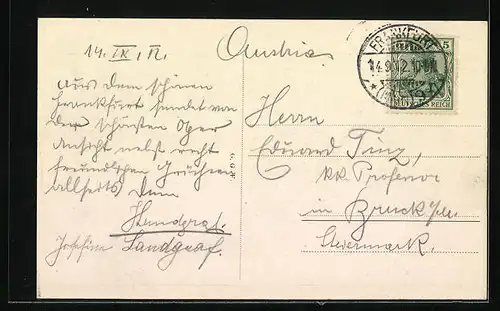 14. IX. 12.
Austria
Aus dem schönen
Frankfurt sendet von
der schönsten Oper
Ansicht nebst recht
freundlichen Grüßen
allseits Dein
Josefine Landgraf.
FRANKFURT
14.9.12.10-11
5
DEUTSCHES REICH
Herrn
Eduard
kk Professor
in Bruck a/M.
Steiermark.